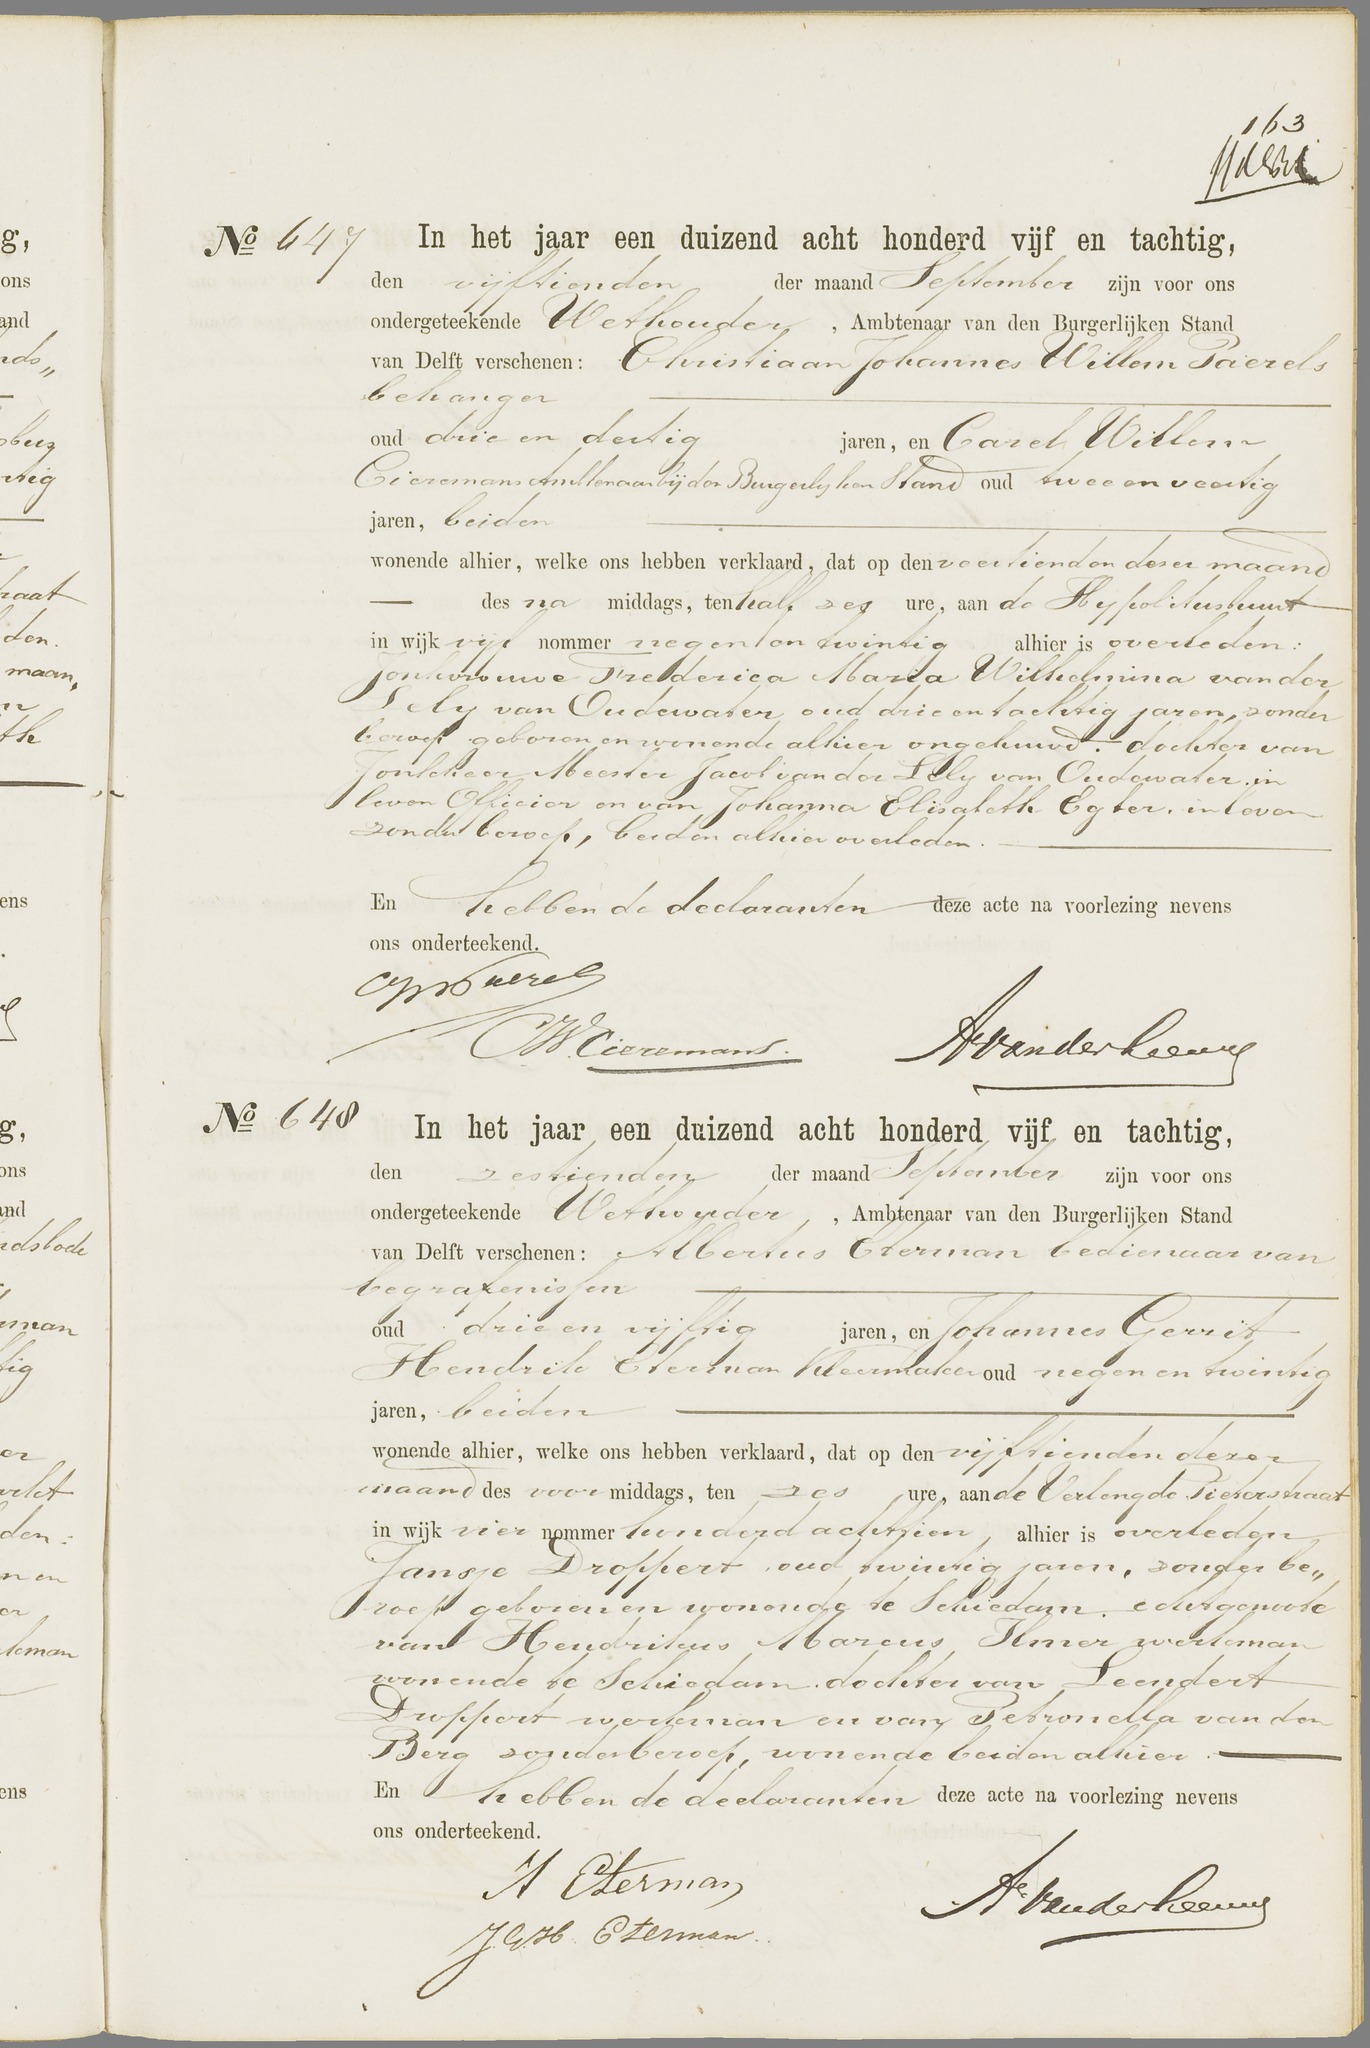 163
No 647 In het jaar een duizend acht honderd vijf en tachtig,
den vijftienden der maand September zijn voor ons
ondergeteekende Wethouder, Ambtenaar van den Burgerlijken Stand
van Delft verschenen: Christiaan Johannes Willem Paerels
behanger
oud drie en dertig jaren, en Carel Willem
Cieremans Ambtenaar bij den Burgerlyken Stand oud twee en veertig
jaren, beiden
wonende alhier, welke ons hebben verklaard, dat op den veertienden dezer maand
— des na middags, ten half zes ure, aan de Hypolitusbuurt
in wijk vijf nommer negen en twintig alhier is overleden:
Jonkvrouwe Frederica Maria Wilhelmina van der
Lely van Oudewater, oud drie en tachtig jaren, zonder
beroep geboren en wonende alhier ongehuwd. dochter van
Jonkheer Meester Jacob van der Lely van Oudewater. in
leven Officier en van Johanna Elisabeth Egter. in leven
zonder beroep, beiden alhier overleden.
En hebben de declaranten deze acte na voorlezing nevens
ons onderteekend.
CJW Paerels
CW. Cieremans. A. van der Leeuw
No 648 In het jaar een duizend acht honderd vijf en tachtig,
den zestienden der maand September zijn voor ons
ondergeteekende Wethouder, Ambtenaar van den Burgerlijken Stand
van Delft verschenen: Albertus Eterman bedienaar van
begrafenissen
oud drie en vijftig jaren, en Johannes Gerrit
Hendrik Eterman kleermaker oud negen en twintig
jaren, beiden
wonende alhier, welke ons hebben verklaard, dat op den vijftienden dezer
maand des voor middags, ten zes ure, aan de Verlengde Pieterstraat
in wijk vier nommer honderd achttien, alhier is overleden
Jansje Droppert oud twintig jaren, zonder be„
roep geboren en wonende te Schiedam. echtgenoote
van Hendrikus Marcus Ilmer werkman
wonende te Schiedam. dochter van Leendert
Droppert werkman en van Petronella van den
Berg zonder beroep, wonende beiden alhier.
En hebben de declaranten deze acte na voorlezing nevens
ons onderteekend.
A Eterman
J.G.H. Eterman. A. van der Leeuw